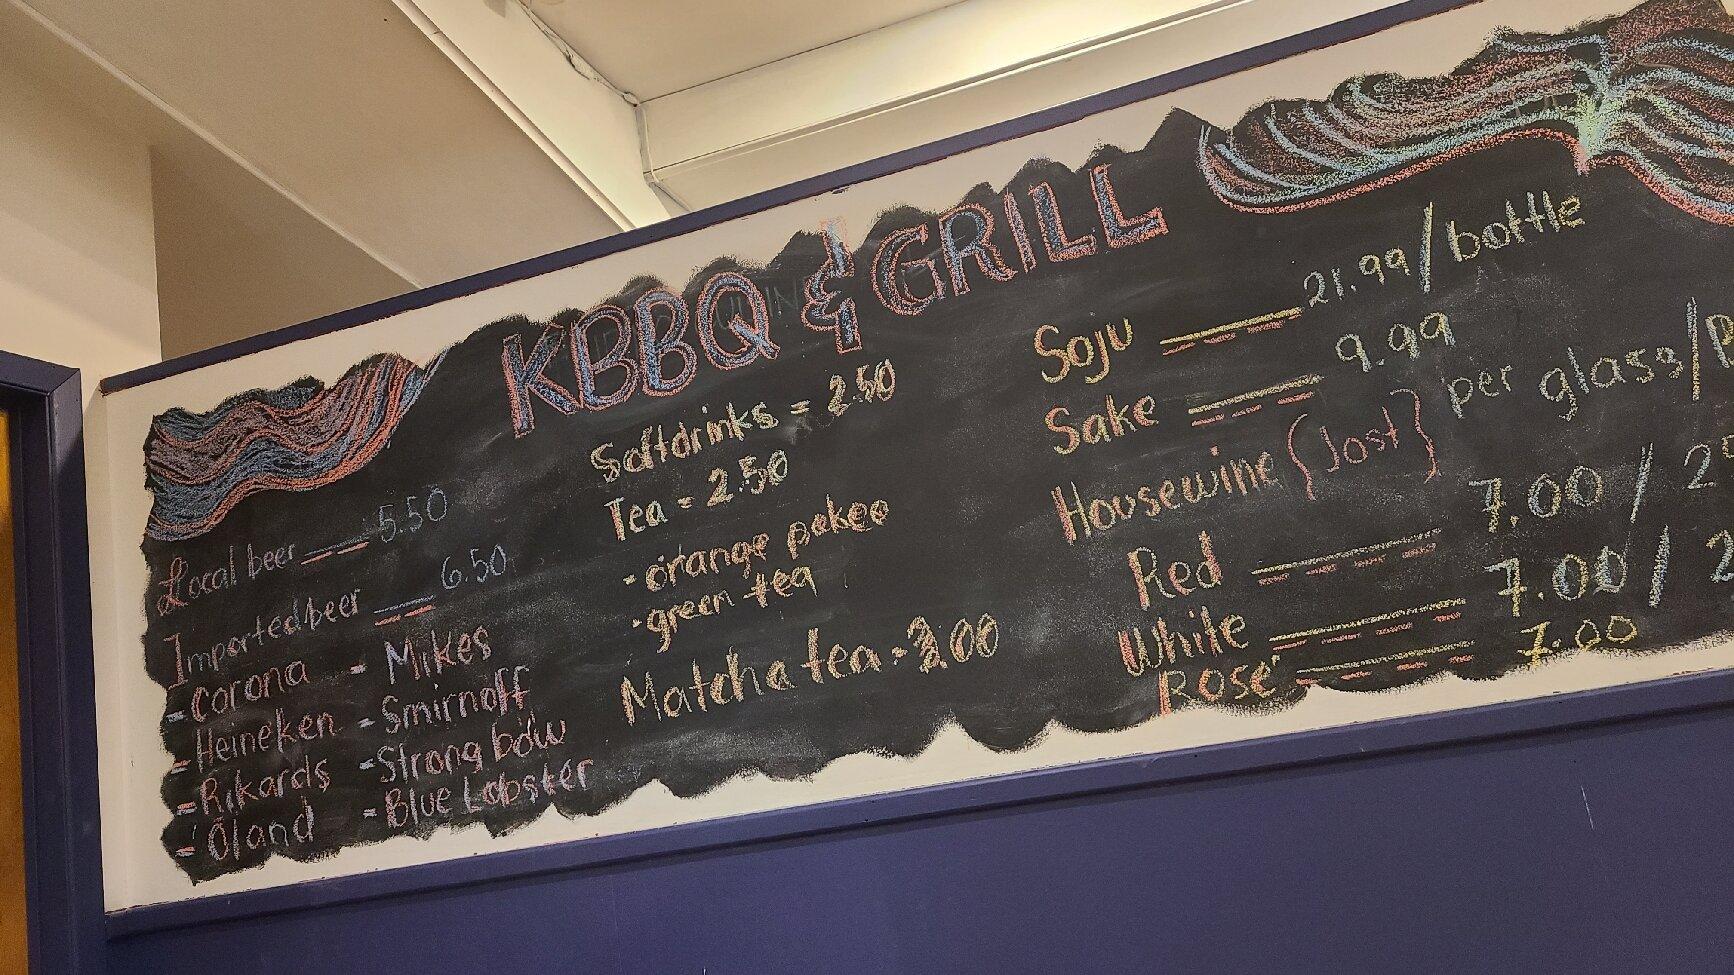 KBBQ & GRILL
Local beer 5.50
Imported beer 6.50
- Corona - Mikes
- Heineken - Smirnoff
- Rikards - Strongbow
- Oland - Blue Lobster
Softdrinks = 2.50
Tea - 2.50
- orange pekoe
- green tea
Matcha tea - 3.00
Soju 21.99/bottle
Sake 9.99
Housewine {Jost} per glass/
Red 7.00 /
White 7.00 /
Rosé 7.00